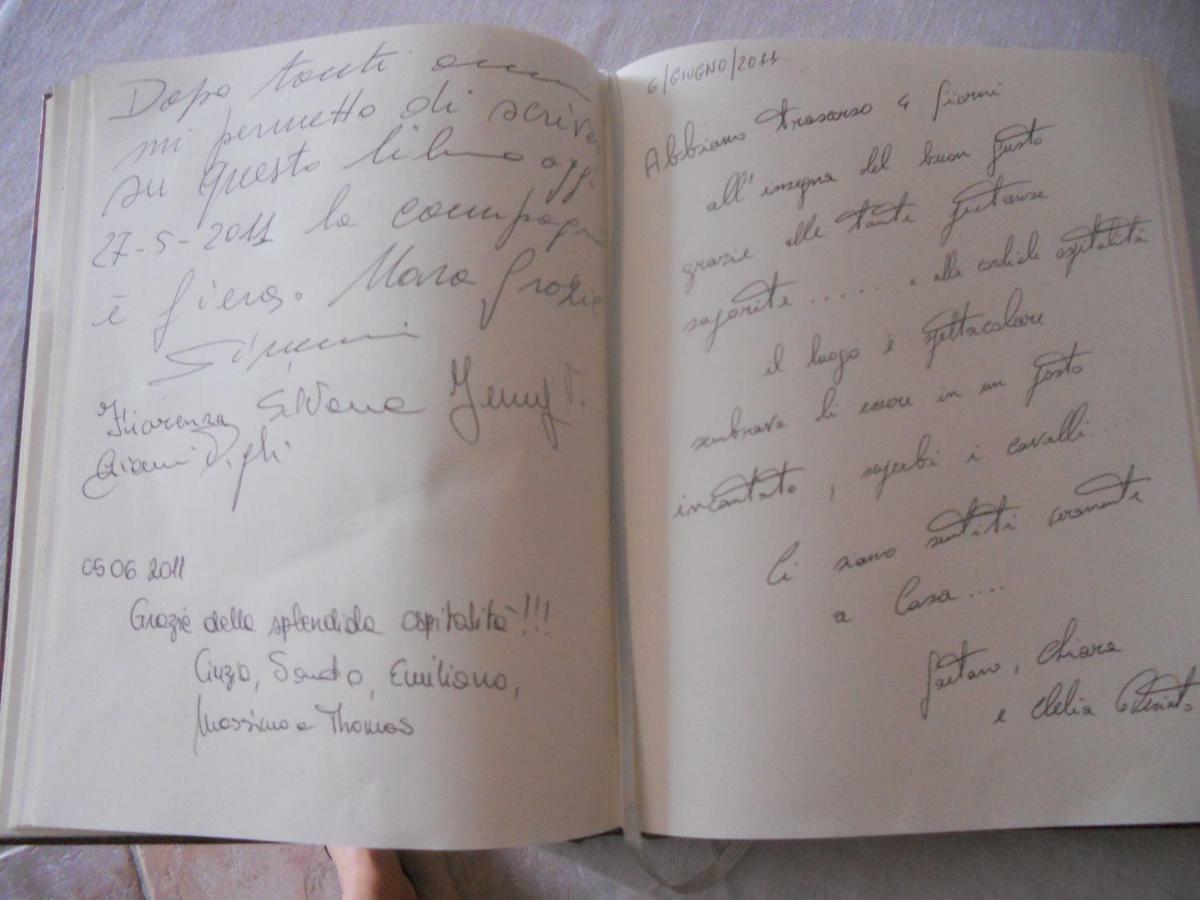 Dopo tanti anni
mi permetto di scrive
su questo libro oggi
27-5-2011 la compagn
è fiera. Mara Grazie
Fiorenza Silvana Jenny V.
Gianni
05 06 2011
Grazie della splendida ospitalità!!!
Cinzia, Sandro, Emiliano,
Massimo e Thomas
6/GIUGNO/2011
Abbiamo trascorso 4 giorni
all'insegna del buon gusto
grazie alle tante pietanze
saporite...... e alla cordiale ospitalità
il luogo è spettacolare
sembrava di essere in un posto
incantato, superbi i cavalli....
Ci siamo sentiti veramente
a Casa....
Gaetano, Chiara
e Clelia